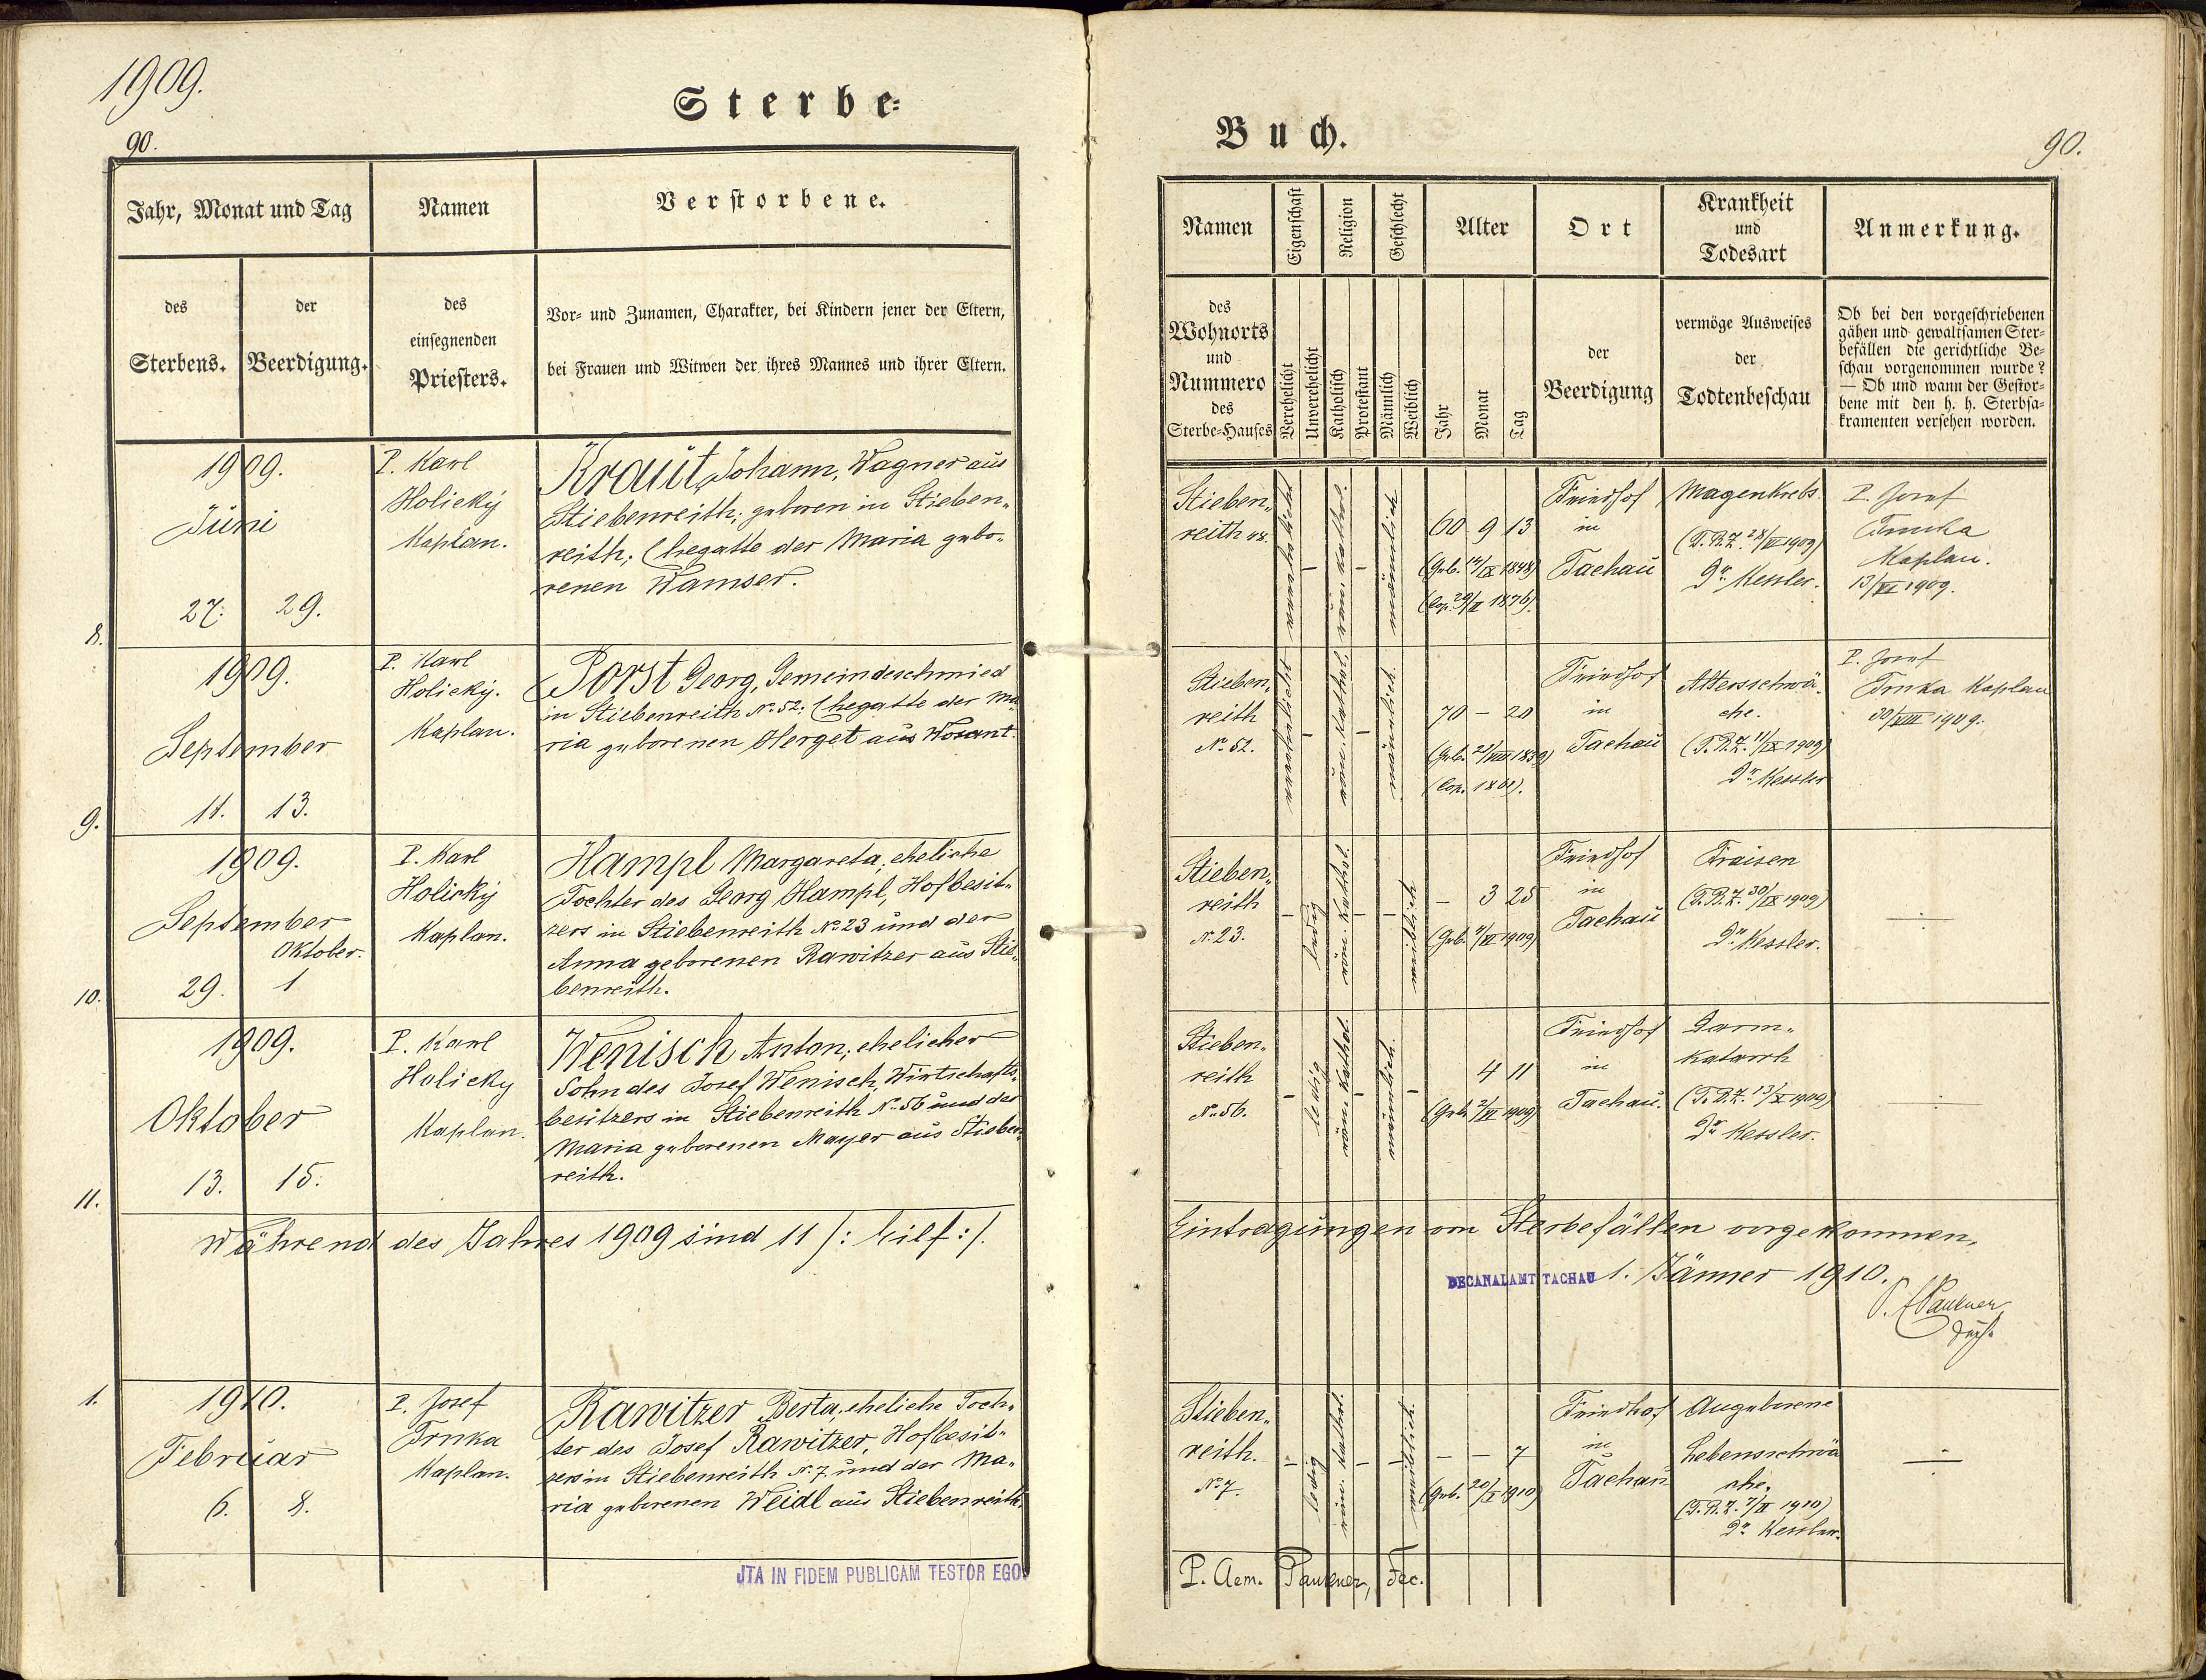 1909.
90.
Sterbe-
Jahr, Monat und Tag
Namen
Verstorbene.
des
Sterbens.
der
Beerdigung.
des
einsegnenden
Priesters.
Vor- und Zunamen, Charakter, bei Kindern jener der Eltern,
bei Frauen und Witwen der ihres Mannes und ihrer Eltern.
8.
1909.
Juni
27. 29.
P. Karl
Holický
Kaplan.
Kraut Johann, Wagner aus
Stiebenreith; geboren in Stieben„
reith; Ehegatte der Maria gebo„
renen Wamser.
9.
1909.
September
11. 13.
P. Karl
Holický.
Kaplan.
Porst Georg, Gemeindeschmied
in Stiebenreith No. 52; Ehegatte der Ma„
ria geborenen Herget aus Wosant.
10.
1909.
September
Oktober.
29. 1
P. Karl
Holický
Kaplan.
Hampl Margareta, eheliche
Tochter des Georg Hampl, Hofbesit„
zers in Stiebenreith No. 23 und der
Anna geborenen Rawitzer aus Stie„
benreith.
11.
1909.
Oktober
13. 15.
P. Karl
Holický
Kaplan.
Wenisch Anton; ehelicher
Sohn des Josef Wenisch, Wirtschafts„
besitzers in Stiebenreith No. 56 und der
Maria geborenen Mayer aus Stieben„
reith.
Während des Jahres 1909 sind 11 /: Eilf :/.
1.
1910.
Februar
6. 8.
P. Josef
Trnka
Kaplan.
Rawitzer Berta, eheliche Toch„
ter des Josef Rawitzer, Hofbesit„
zers in Stiebenreith No. 7 und der Ma„
ria geborenen Weidl aus Stiebenreith.
JTA IN FIDEM PUBLICAM TESTOR EGO
Buch.
90.
Namen
Eigenschaft
Religion
Geschlecht
Alter
Ort
Krankheit
und
Todesart
Anmerkung.
des
Wohnorts
und
Nummero
des
Sterbe-Hauses
Verehelicht
Unverehelicht
Katholisch
Protestant
Männlich
Weiblich
Jahr
Monat
Tag
der
Beerdigung
vermöge Ausweises
der
Todtenbeschau
Ob bei den vorgeschriebenen
gähen und gewaltsamen Ster-
befällen die gerichtliche Be-
schau vorgenommen wurde?
— Ob und wann der Gestor-
bene mit den h. h. Sterbsa-
kramenten versehen worden.
Stieben„
reith 48.
verehelicht
–
röm. kathol.
–
männlich
60 9 13
(Geb. 14/IX 1848)
(Cop. 29/II 1876).
Friedhof
in
Tachau
Magenkrebs.
(T.B.Z. 28/VI 1909)
Dr. Kessler.
P. Josef
Trnka
Kaplan.
13/VI 1909.
Stieben„
reith
No. 52.
verehelicht
–
röm. kathol.
–
männlich.
70 – 20
(Geb. 21/VIII 1839)
(Cop. 1861).
Friedhof
in
Tachau
Altersschwä„
che.
(T.B.Z. 11/IX 1909)
Dr. Kessler
P. Josef
Trnka Kaplan
30/VIII 1909.
Stieben„
reith
No. 23.
–
ledig
röm. kathol.
–
–
weiblich
– 3 25
(Geb. 4/VI 1909)
Friedhof
in
Tachau
Fraisen
(T.B.Z. 30/IX 1909)
Dr. Kessler.
÷
Stieben„
reith
No. 56.
–
ledig
röm. kathol.
–
männlich.
–
4 11
(Geb. 2/VI 1909)
Friedhof
in
Tachau.
Darm„
katarrh
(T.B.Z. 13/X 1909)
Dr. Kessler.
÷
Eintragungen von Sterbefällen vorgekommen.
DECANALAMT TACHAU 1. Jänner 1910.
P. Paulener
Stieben„
reith.
No. 7.
–
ledig
röm. kathol.
–
–
weiblich.
– – 7
(Geb. 30/I 1910)
Friedhof
in
Tachau
Angeborene
Lebensschwä
che.
(T.B.Z. 7/II 1910)
Dr. Kessler.
÷
P. Aem. Paulener, Dec.